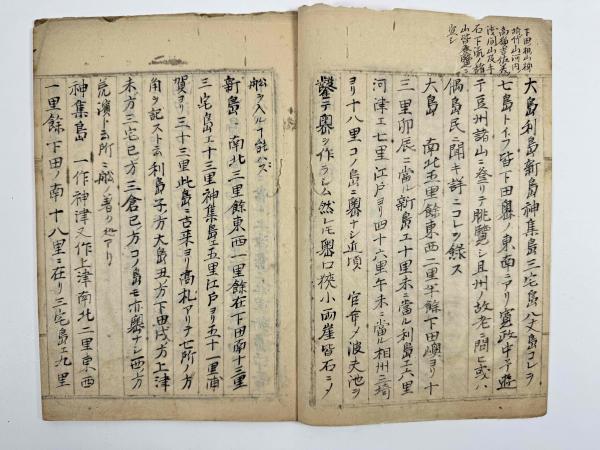 下田桃山神
大島利島新島神集島三宅島八丈島コレヲ
七島トイフ皆下田奥ノ東南ニアリ憲政中予遊
于豆州諸山ニ登リテ眺覽シ且州ノ故老ニ問ヒ或ハ
偶島民ニ聞キ詳ニコレヲ録ス
大島 南北五里餘東西二里半餘下田ヨリ十
三里卯辰ニ當ル新島エ十里未ニ當ル利島エ六里
河津エ七里江戸ヨリ四十六里午未ニ當ル相州三崎
ヨリ十八里コノ島ニ奥ナシ近頃 官命メ波天池ヲ
鑿テ奥ヲ作ラシム然レ𪜈奥口狹小両崖皆石ニ〆
舩ヲ入ルヿ能ハズ
新島 南北三里餘東西一里餘在下田南十三里
三宅島エ十三里神集島エ五里江戸ヨリ五十一里浦
賀ヨリ三十三里此島ニ古来ヨリ高札アリテ七所ノ方
角ヲ記スト云利島子方大島丑方下田戌方上津
未方三宅巳方三倉巳方コノ島モ亦奥ナシ西ノ方
荒濱ト云所ニ舩ノ著ク処アリ
神集島 一作神津又作上津南北二里東西
一里餘下田ノ南十八里ニ在リ三宅島エ九里